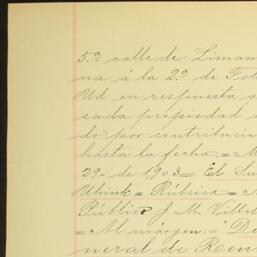 5.ª calle de Liman
na á la 2.ª de Fol
Ud en respuesta q
cada propiedad
do por contribucio
hasta la fecha.=M
29 de 1903= El In
Ulink= Rúbrica=
Público J. M. Villel
=Al margen:= "De
neral de Ren